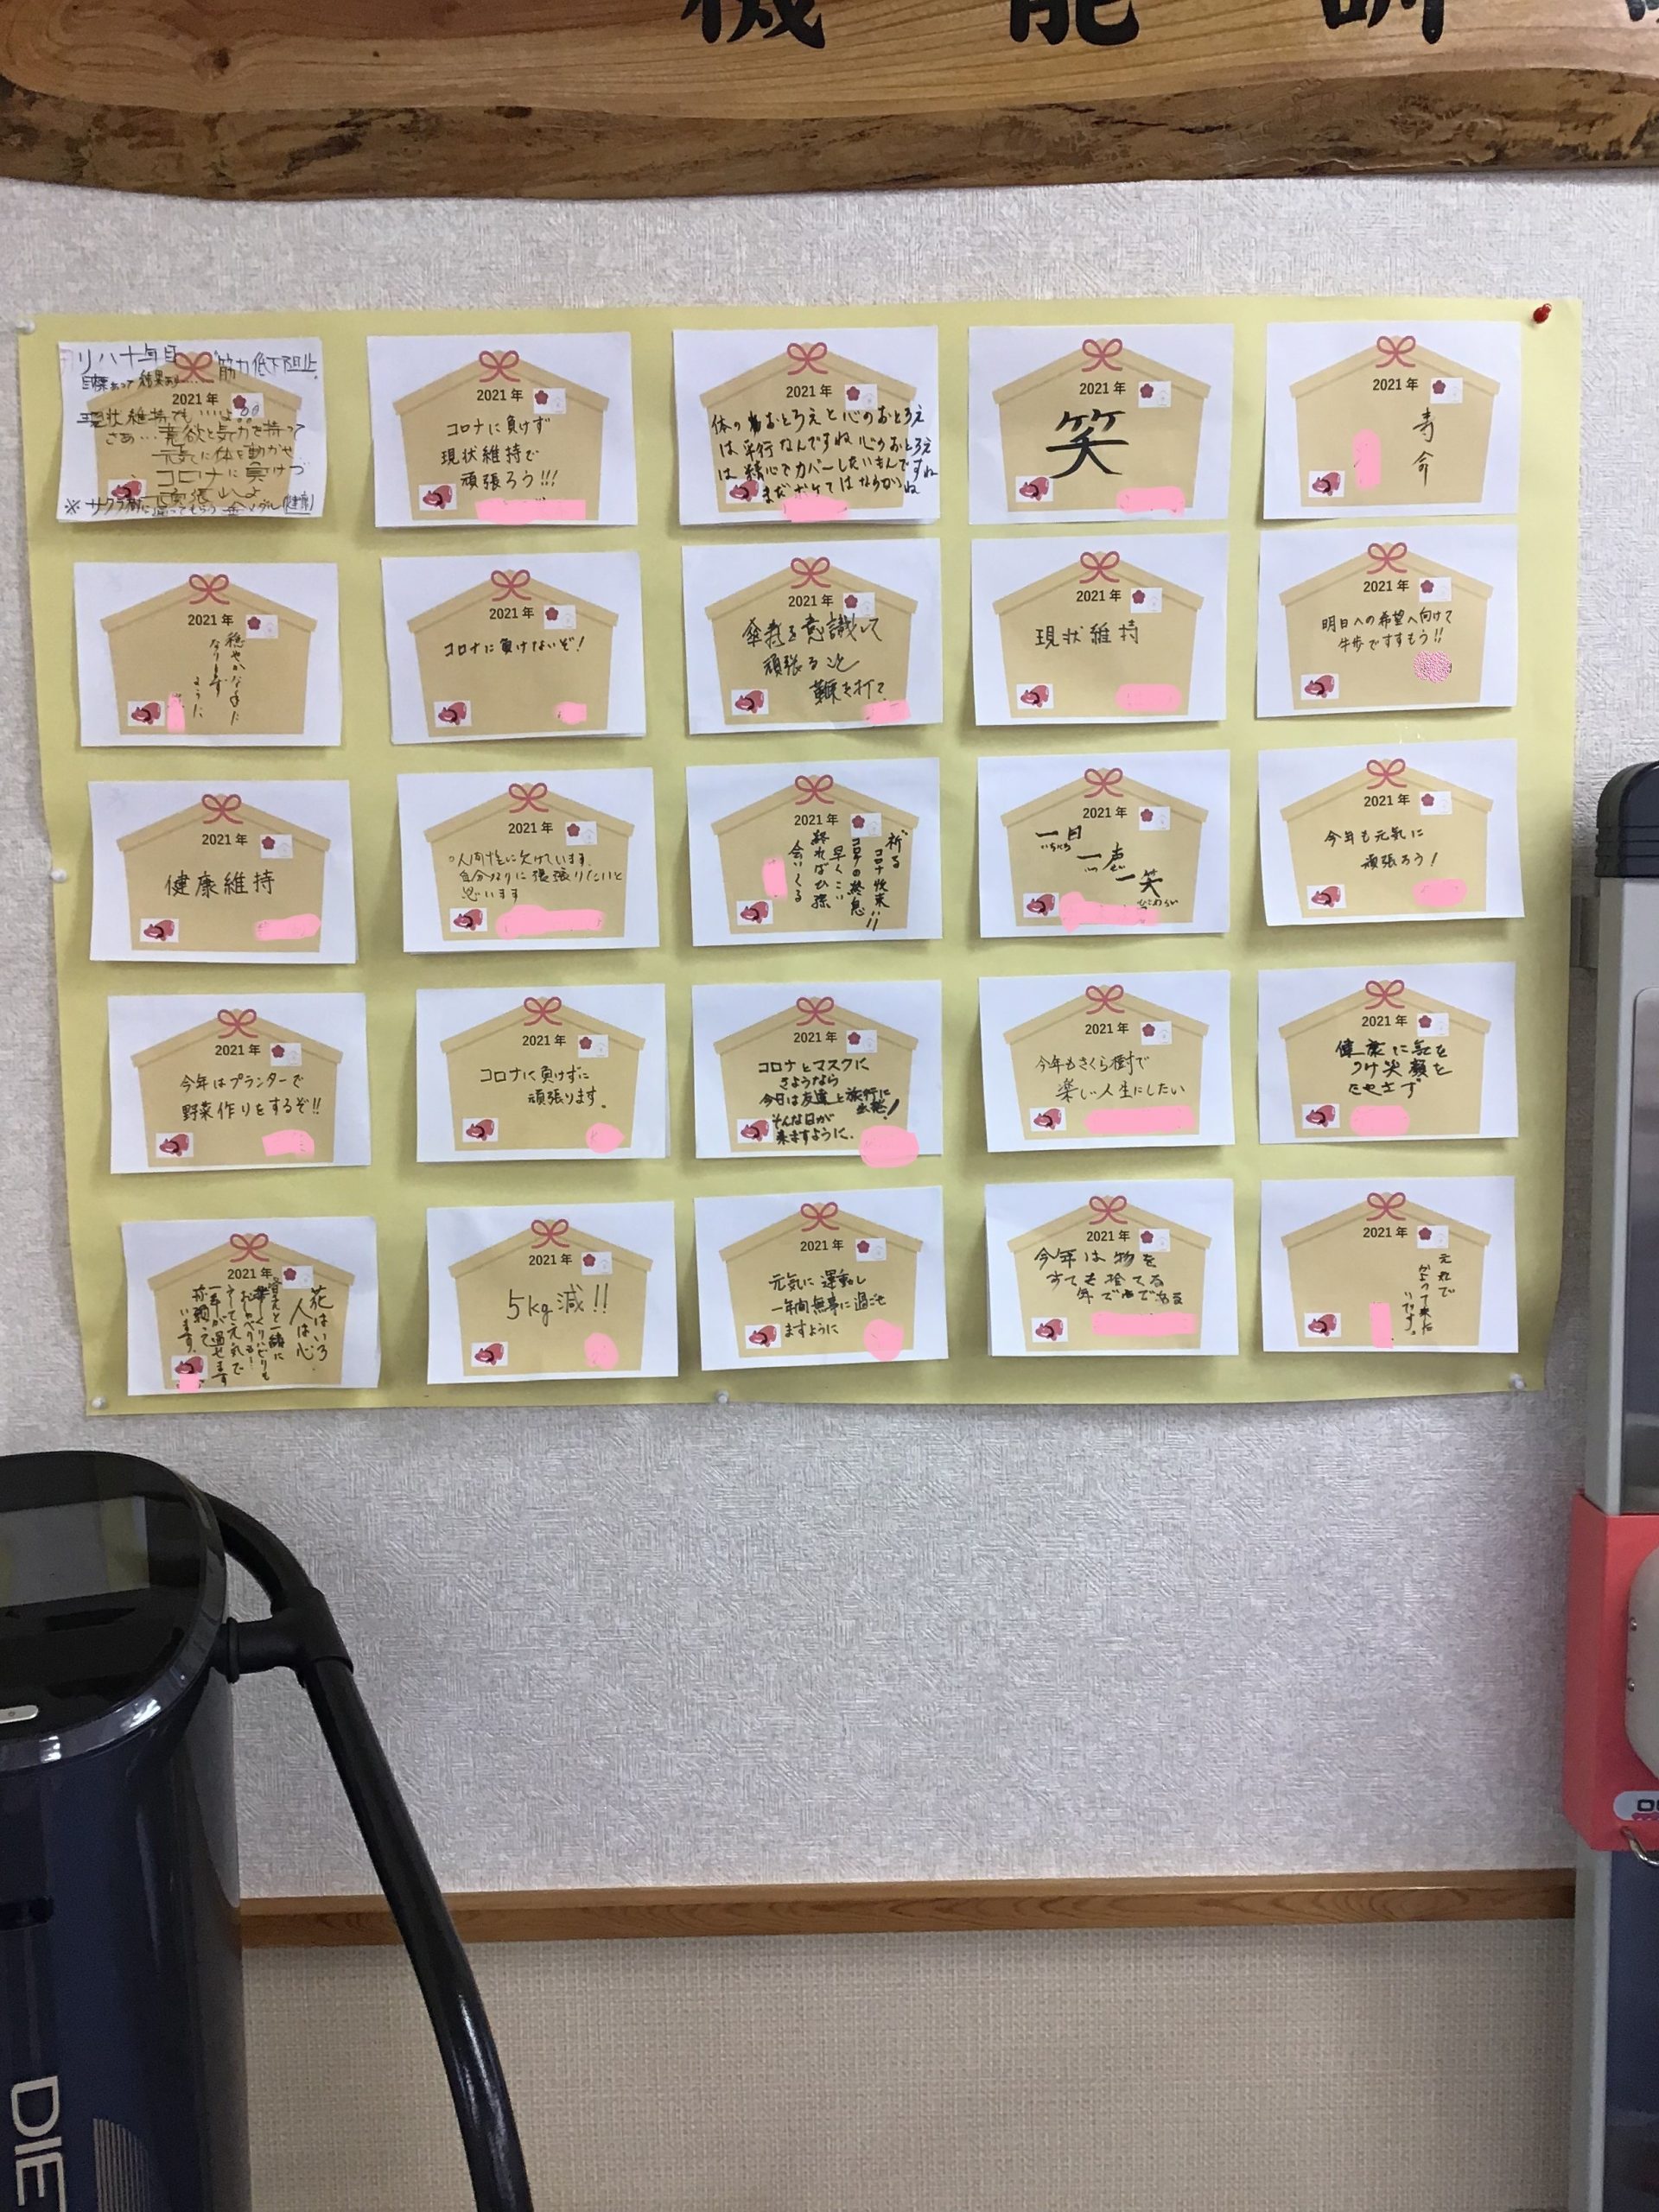 機 能 訓
リハ十年目
筋力低下阻止
目標あって結果あり……
2021年
現状維持でも…よ
さあ…意欲と気力を持って
元気に体を動かせ
コロナに負けづ
頑張りへよ
※サクラ樹に
健康
2021年
コロナに負けず
現状維持で
頑張ろう!!!
2021年
体のおとろえと心のおとろえ
は平行なんですね心のおとろえ
は精心でカバーしたいもんですね
まだボケてはならかいね
2021年
笑
2021年
寿命
2021年
穏やかな年に
なります
ように
2021年
コロナに負けないぞ!
2021年
傘寿を意識して
頑張ること
鞭を打て
2021年
現状維持
2021年
明日への希望へ向けて
牛歩ですすもう!!
2021年
健康維持
2021年
人間性に欠けています。
自分なりに張張りたいと
思います
2021年
祈る
コロナ収束!!
コロナの終息
早くこい
終ればひ孫
会いくる
2021年
一日
いちにち
一恵
一笑
2021年
今年も元気に
頑張ろう!
2021年
今年はプランターで
野菜作りをするぞ!!
2021年
コロナに負けずに
頑張ります。
2021年
コロナとマスクに
さようなら
今日は友達と旅行に
出発!
そんな日が
来ますように.
2021年
今年もさくら樹で
楽しい人生にしたい
2021年
健康に気を
つけ笑顔を
たやさず
2021年
花はいろ
人は心
皆さんと一緒に
楽しくリハビリも
おしゃべりも!
そして元気で
一年が過せます
祈願して
います。
2021年
5kg減!!
2021年
元気に運動し
一年間無事に過ごせ
ますように
2021年
今年は物を
すてる捨てる
年である
2021年
元気で
かよって来た
いです。
DIE